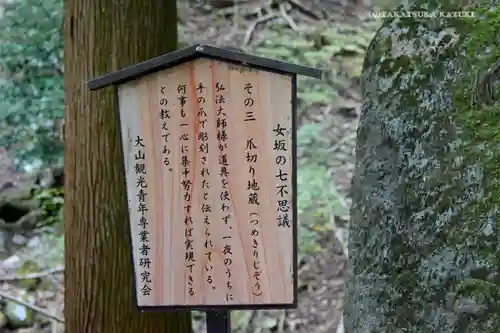 (C)TAKATSUKA KAZUKI
女坂の七不思議
その三 爪切り地蔵(つめきりじぞう)
弘法大師様が道具を使わず、一夜のうちに
手の爪で彫刻されたと伝えられている。
何事も一心に集中努力すれば実現できる
との教えである。
大山観光青年専業者研究会